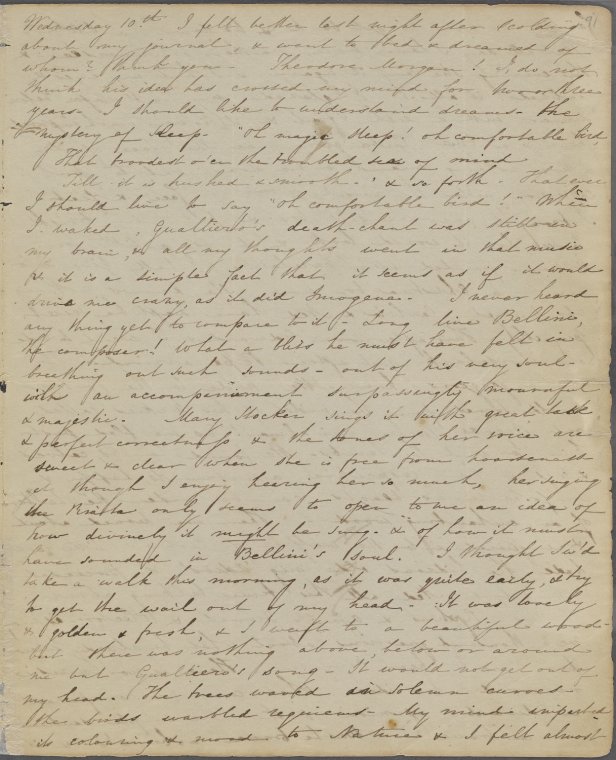 Wednesday 10.th I felt better last night after scolding 91
about my journal, & went to bed & dreamed of
whom? think you - Theodore Morgan! I do not
think his idea has crossed my mind for two or three
years. I should like to understand dreams - the
mystery of sleep. "Oh magic sleep! oh comfortable bird,
That broodest o'er the troubled sea of mind
Till it is hushed & smooth - " & so forth. That ever
I should live to say "oh comfortable bird!" When
I waked, Gualtiero's death-chant was still in
my brain, & all my thoughts went in that music
& it is a simple fact that it seems as if it would
drive me crazy, as it did Imogene - I never heard
any thing yet to compare to it - Long live Bellini,
the composer! What a bliss he must have felt in
breathing out such sounds - out of his very soul -
with an accompaniment surpassingly mournful
& majestic. Mary Hocker sings it with great taste
& perfect correctness & the tones of her voice are
sweet & clear when she is free from hoarseness -
yet though I enjoy hearing her so much, her singing
the only seems to open to me an idea of
how divinely it might be sung - & of how it must
have sounded in Bellini's soul. I thought I'd
take a walk this morning, as it was quite early, & try
to get the wail out of my head - It was lovely
& golden & fresh, & I went to a beautiful wood -
but there was nothing above, below or around
me but Gualtiero's song - It would not get out of
my head. The trees waved in solemn curves -
the birds warbled requiems - My mind imparted
its colouring & mood to Nature & I felt almost